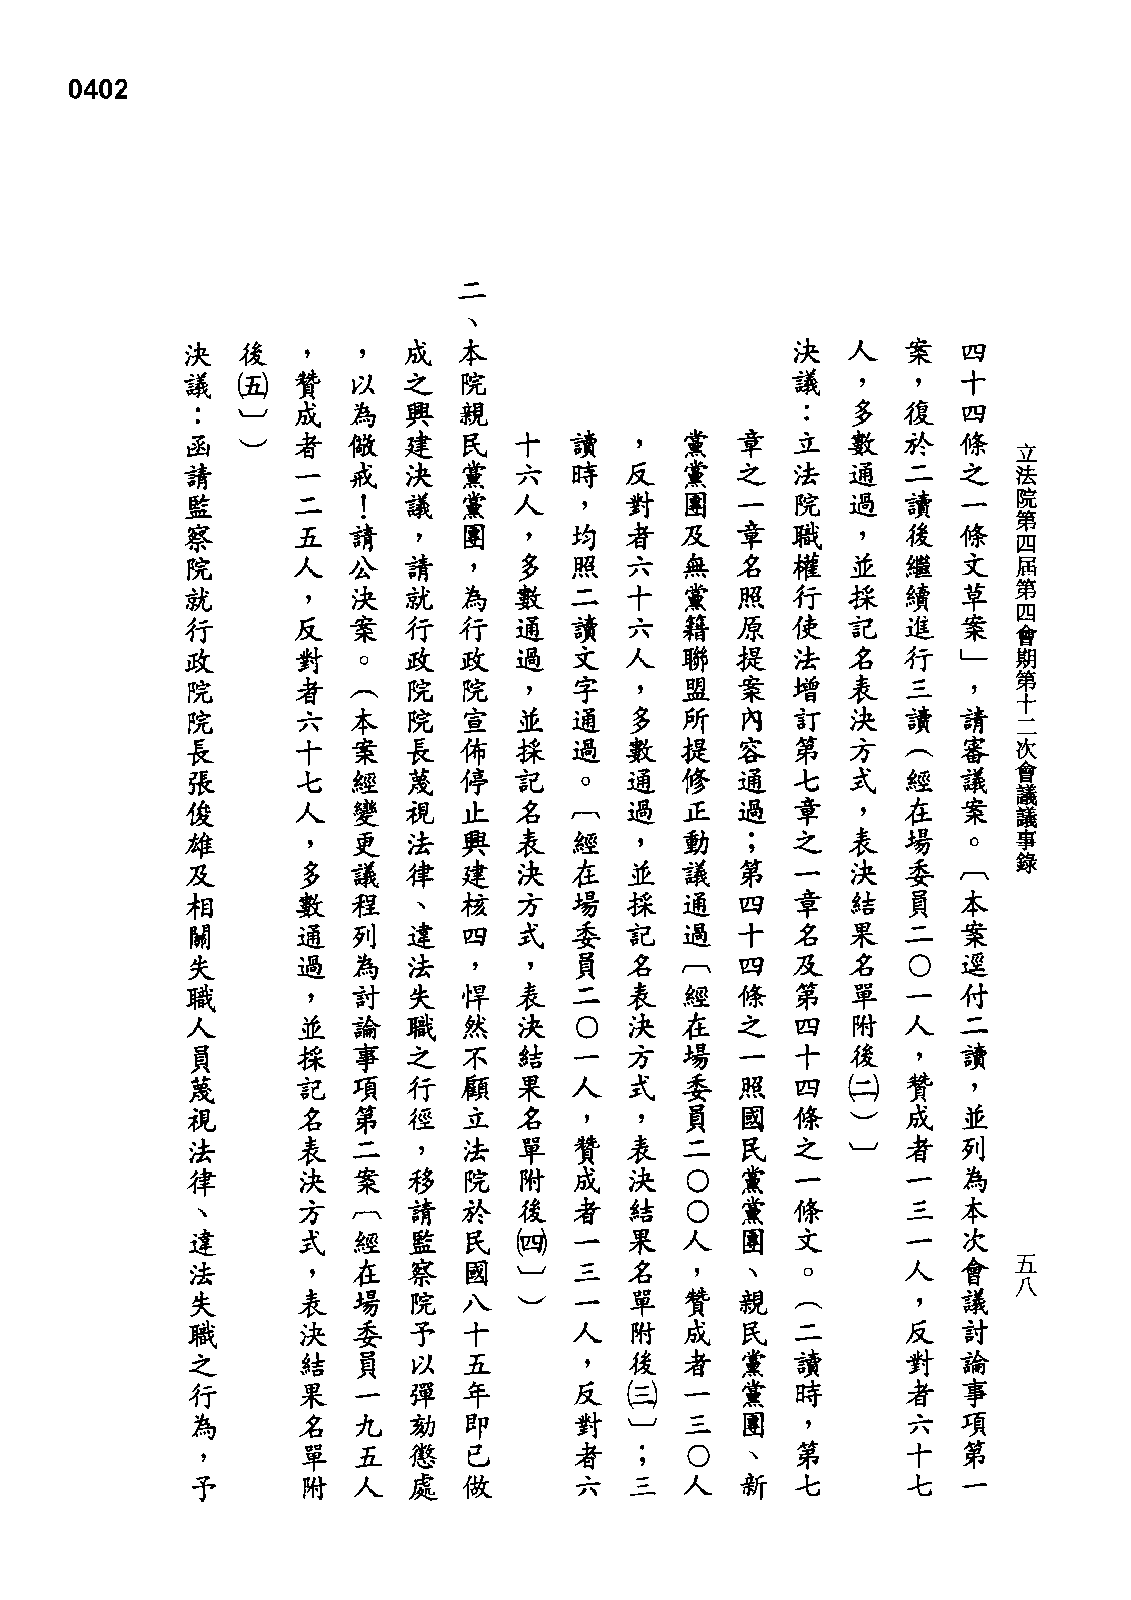 0402
立法院第四屆第四會期第十二次會議議事錄
五八
四十四條之一條文草案」，請審議案。〔本案逕付二讀，並列為本次會議討論事項第一
案，復於二讀後繼續進行三讀（經在場委員二〇一人，贊成者一三一人，反對者六十七
人，多數通過，並採記名表決方式，表決結果名單附後㈡）〕
決議：立法院職權行使法增訂第七章之一章名及第四十四條之一條文。（二讀時，第七
章之一章名照原提案內容通過；第四十四條之一照國民黨黨團、親民黨黨團、新
黨黨團及無黨籍聯盟所提修正動議通過〔經在場委員二〇〇人，贊成者一三〇人
，反對者六十六人，多數通過，並採記名表決方式，表決結果名單附後㈢〕；三
讀時，均照二讀文字通過。〔經在場委員二〇一人，贊成者一三一人，反對者六
十六人，多數通過，並採記名表決方式，表決結果名單附後㈣〕）
二、本院親民黨黨團，為行政院宣佈停止興建核四，悍然不顧立法院於民國八十五年即已做
成之興建決議，請就行政院院長蔑視法律、違法失職之行徑，移請監察院予以彈劾懲處
，以為儆戒！請公決案。（本案經變更議程列為討論事項第二案〔經在場委員一九五人
，贊成者一二五人，反對者六十七人，多數通過，並採記名表決方式，表決結果名單附
後㈤〕）
決議：函請監察院就行政院院長張俊雄及相關失職人員蔑視法律、違法失職之行為，予